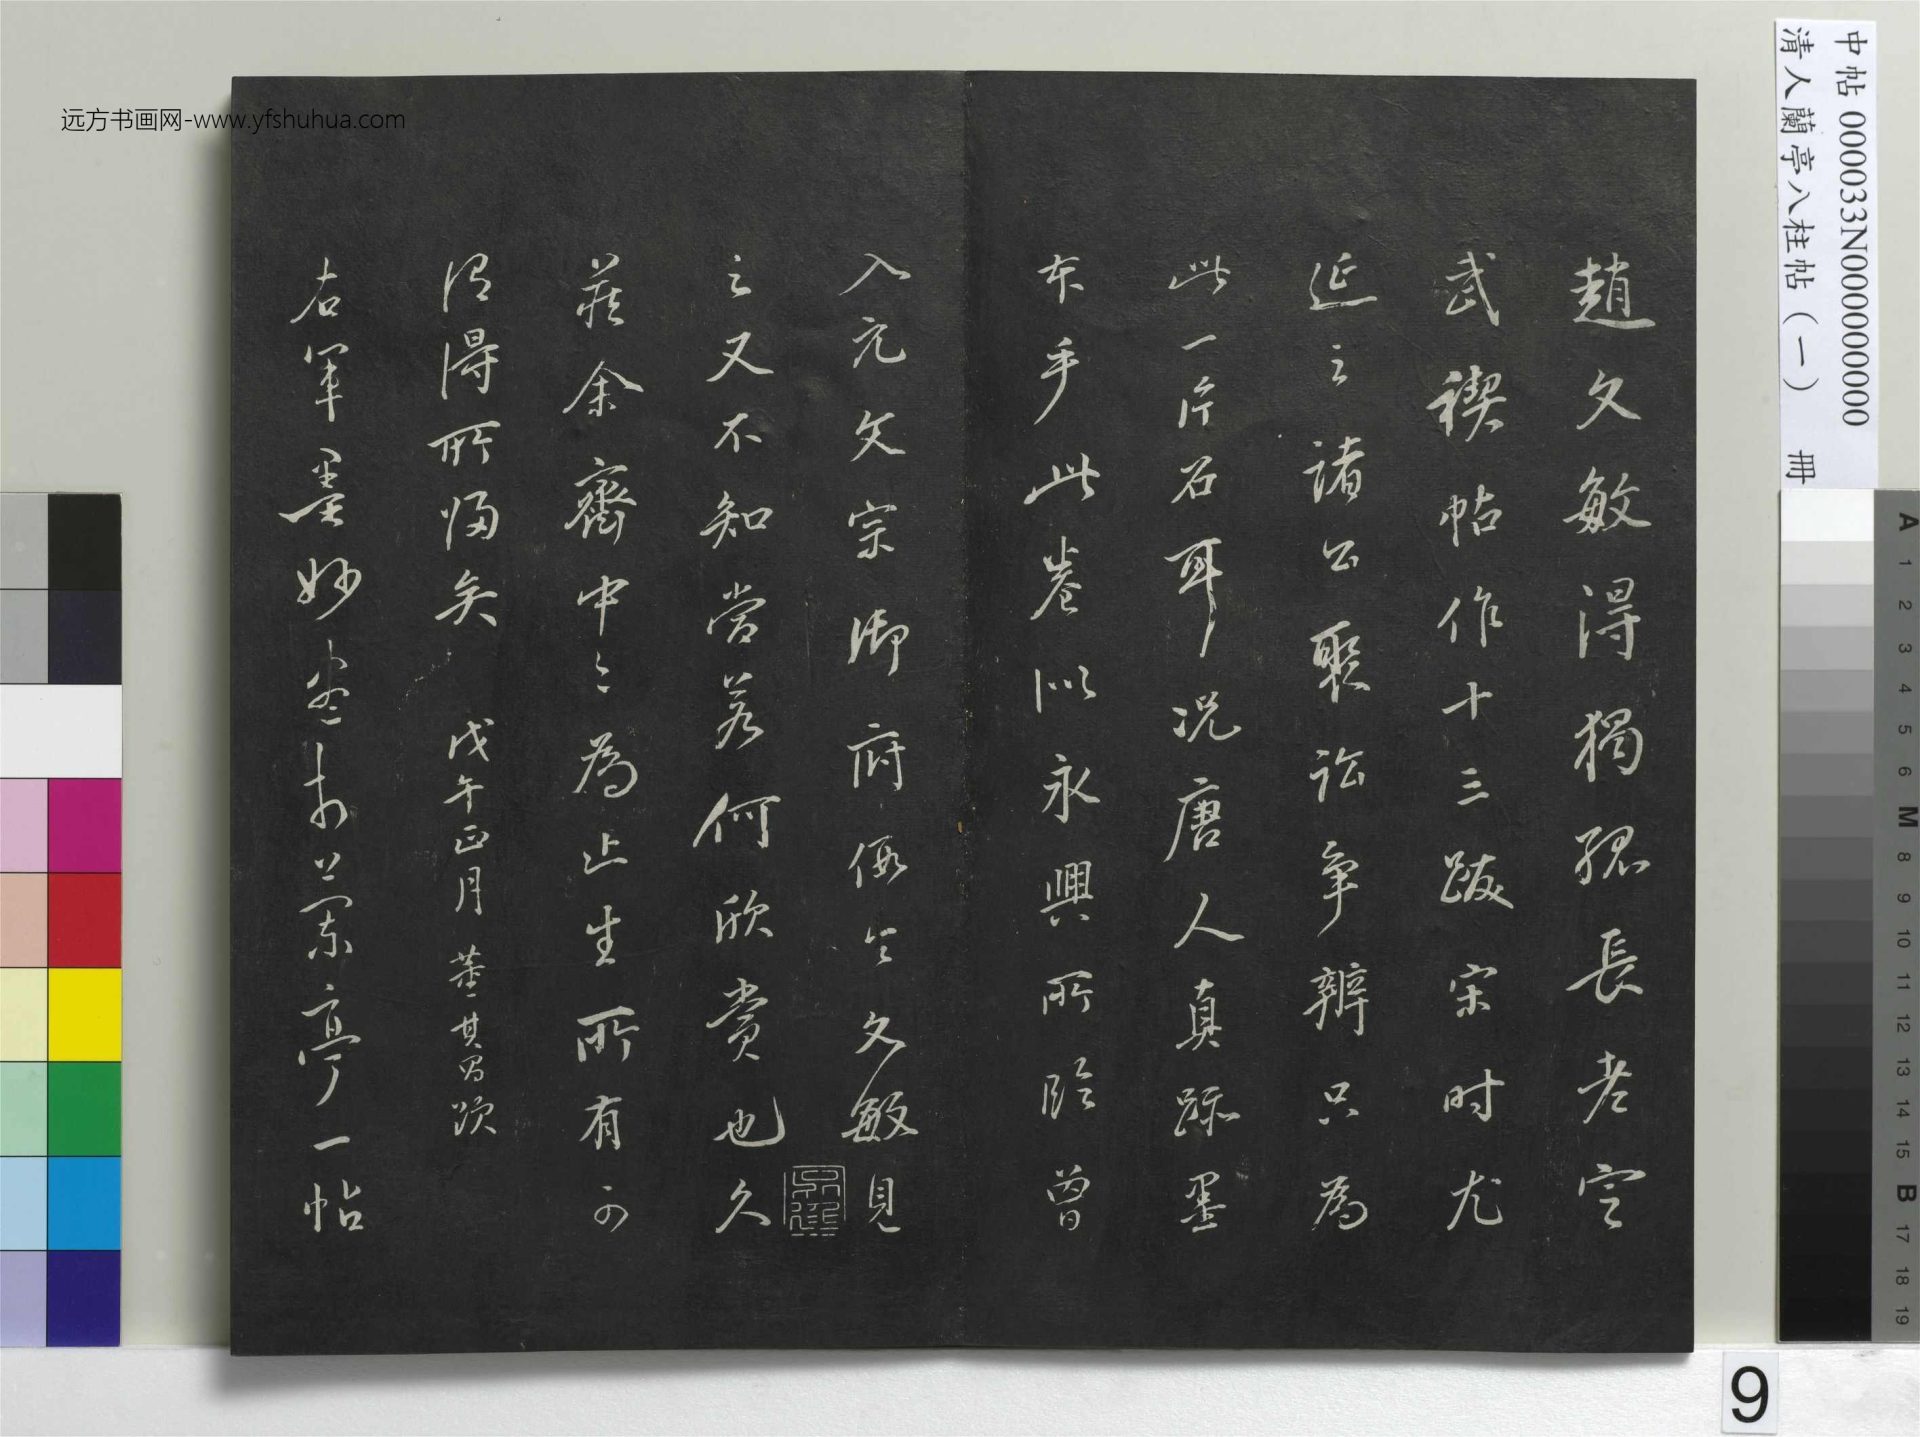 趙文敏得獨孤長老定
武禊帖作十三跋宋时尤
延之諸公聚訟争辨只為
此一片石耳况唐人真跡墨
本手此卷似永興所臨曾
入元文宗御府假令文敏見
之又不知當若何欣賞也久
藏余齋中〻為止生所有可
謂得所歸矣 戊午正月 董其昌跋
右軍墨妙 蘭亭一帖
中帖 000033N000000000
清人蘭亭八柱帖(一) 冊
远方书画网-www.yfshuhua.com
A
1
2
3
4
5
6
M
8
9
10
11
12
13
14
15
B
17
18
19
9